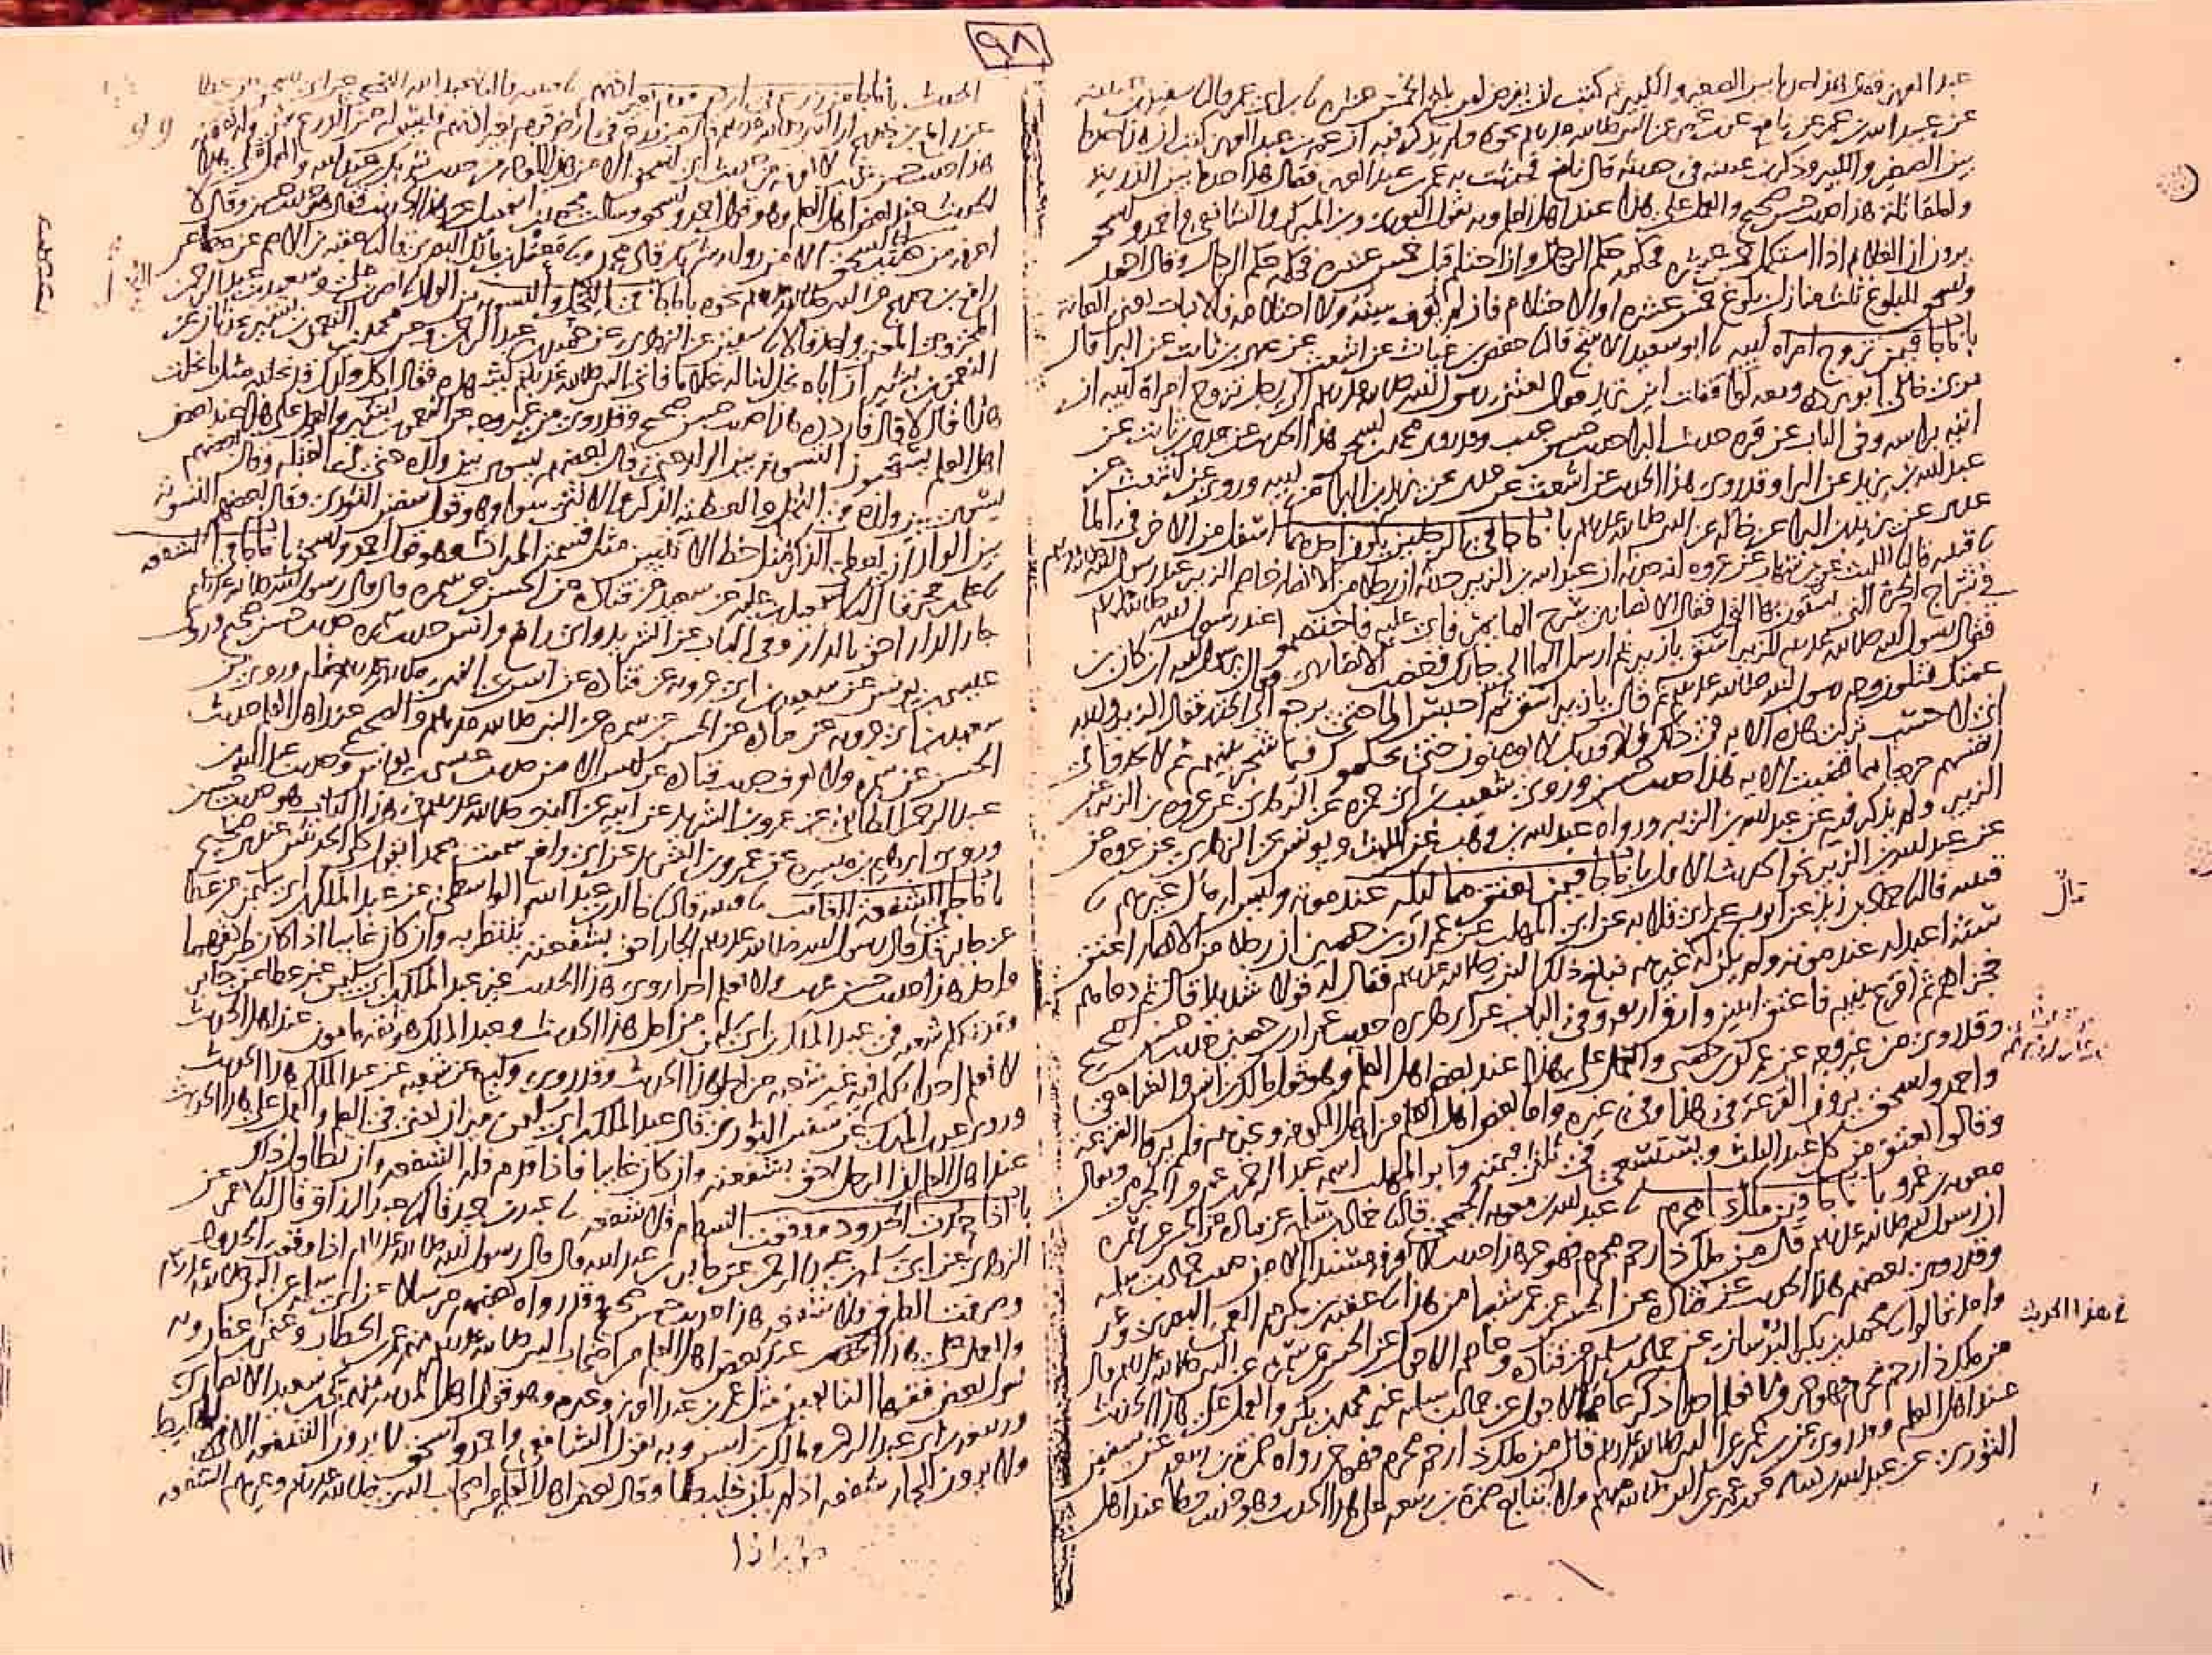 ٩٨
عبد العزيز فقال هذا حد ما بين الصغير والكبير ثم كتب ان يفرض لمن بلغ الخمس عشرة ابن ابي عمر قال سفين
عن عبيد الله بن عمر عن نافع عن ابن عمر عن النبي صلى الله عليه وسلم نحوه ولم يذكر فيه ان عمر بن عبد العزيز كتب ان هذا حد ما
بين الصغير والكبير وذكر ابن عيينة في حديثه قال نافع فحدثت به عمر بن عبد العزيز فقال هذا حد ما بين الذرية
والمقاتلة هذا حديث حسن صحيح والعمل على هذا عند اهل العلم وبه يقول الثوري وابن المبارك والشافعي واحمد واسحق
يرون ان الغلام اذا استكمل خمس عشرة فحكمه حكم الرجال وان احتلم قبل خمس عشرة فحكمه حكم الرجال وقال احمد
واسحق للبلوغ ثلث منازل بلوغ خمس عشرة او الاحتلام فان لم يعرف سنه ولا احتلامه فالانبات يعني العانة
باب ما جا فيمن تزوج امراة ابيه ابو سعيد الاشج قال حفص بن غياث عن اشعث عن عدي بن ثابت عن البرا قال
مر بي خالي ابو بردة ومعه لوا فقلت اين تريد قال بعثني رسول الله صلى الله عليه وسلم الى رجل تزوج امراة ابيه ان
اتيه براسه وفي الباب عن قرة حديث البرا حديث حسن غريب وقد روى محمد بن اسحق هذا الحديث عن عدي بن ثابت عن
عبد الله بن يزيد عن البرا وقد روي هذا الحديث عن اشعث عن عدي عن يزيد بن البرا عن ابيه وروي عن اشعث عن
عدي عن يزيد بن البرا عن خاله عن النبي صلى الله عليه وسلم باب ما جا في الرجلين يكون احدهما اسفل من الاخر في الما
قتيبة قال الليث عن ابن شهاب عن عروة انه حدثه ان عبد الله بن الزبير حدثه ان رجلا من الانصار خاصم الزبير عند رسول الله صلى الله عليه وسلم
في شراج الحرة التي يسقون بها النخل فقال الانصاري سرح الما يمر فابى عليه فاختصموا عند رسول الله صلى الله عليه وسلم
فقال رسول الله صلى الله عليه وسلم للزبير اسق يا زبير ثم ارسل الما الى جارك فغضب الانصاري فقال يا رسول الله ان كان ابن
عمتك فتلون وجه رسول الله صلى الله عليه وسلم ثم قال يا زبير اسق ثم احبس الما حتى يرجع الى الجدر فقال الزبير والله
اني لاحسب نزلت هذه الاية في ذلك فلا وربك لا يومنون حتى يحكموك فيما شجر بينهم ثم لا يجدوا في
انفسهم حرجا مما قضيت الاية هذا حديث حسن وروى شعيب بن ابي حمزة عن الزهري عن عروة بن الزبير عن
الزبير ولم يذكر فيه عن عبد الله بن الزبير ورواه عبد الله بن وهب عن الليث ويونس عن الزهري عن عروة عن
عن عبد الله بن الزبير نحو الحديث الاول باب ما جا فيمن يعتق مماليكه عند موته وليس له مال غيرهم
قتيبة قال حماد بن زيد عن ايوب عن ابي قلابة عن ابي المهلب عن عمران بن حصين ان رجلا من الانصار اعتق
ستة اعبد له عند موته ولم يكن له غيرهم فبلغ ذلك النبي صلى الله عليه وسلم فقال له قولا شديدا قال ثم دعاهم
فجزاهم ثم اقرع بينهم فاعتق اثنين وارق اربعة وفي الباب عن ابي هريرة حديث عمران بن حصين حديث حسن صحيح
وقد روي من غير وجه عن عمران بن حصين والعمل على هذا عند بعض اهل العلم وهو قول مالك بن انس والشافعي
واحمد واسحق يرون القرعة في هذا وفي غيره واما بعض اهل العلم من اهل الكوفة وغيرهم فلم يروا القرعة
وقالوا يعتق من كل عبد الثلث ويستسعى في ثلثي قيمته وابو المهلب اسمه عبد الرحمن بن عمرو الجرمي ويقال
معوية بن عمرو باب ما جا فيمن ملك ذا محرم عبد الله بن معوية الجمحي قال حماد بن سلمة عن قتادة عن الحسن عن سمرة
ان رسول الله صلى الله عليه وسلم قال من ملك ذا رحم محرم فهو حر هذا حديث لا نعرفه مسندا الا من حديث حماد بن سلمة
وقد روى بعضهم هذا الحديث عن قتادة عن الحسن عن عمر شيئا من هذا عقبة بن مكرم العمي البصري وغير
واحد قالوا محمد بن بكر البرساني عن حماد بن سلمة عن قتادة وعاصم الاحول عن الحسن عن سمرة عن النبي صلى الله عليه وسلم قال
من ملك ذا رحم محرم فهو حر ولا نعلم احدا ذكر عاصما الاحول عن حماد بن سلمة غير محمد بن بكر والعمل على هذا الحديث
عند اهل العلم وقد روي عن ابن عمر عن النبي صلى الله عليه وسلم قال من ملك ذا رحم محرم فهو حر رواه ضمرة بن ربيعة عن سفين
الثوري عن عبد الله بن دينار عن ابن عمر عن النبي صلى الله عليه وسلم ولا يتابع ضمرة بن ربيعة على هذا الحديث وهو حديث خطا عند اهل
في هذا الحديث
٩٩
الحديث باب ما جا من زرع في ارض قوم بغير اذنهم قتيبة قال شريك بن عبد الله النخعي عن ابي اسحق عن عطا
عن رافع بن خديج ان النبي صلى الله عليه وسلم قال من زرع في ارض قوم بغير اذنهم فليس له من الزرع شي وله نفقته
هذا حديث حسن غريب لا نعرفه من حديث ابي اسحق الا من هذا الوجه من حديث شريك بن عبد الله والعمل على هذا
الحديث عند بعض اهل العلم وهو قول احمد واسحق وسالت محمد بن اسمعيل عن هذا الحديث فقال هو حديث حسن وقال لا
اعرفه من حديث ابي اسحق الا من رواية شريك قال محمد معقل بن مالك البصري قال عقبة بن الاصم عن عطا عن
رافع بن خديج عن النبي صلى الله عليه وسلم نحوه باب ما جا في النحل والتسوية بين الولد نصر بن علي وسعيد بن عبد الرحمن
المخزومي المعنى واحد قالا سفين عن الزهري عن حميد بن عبد الرحمن وعن محمد بن النعمن بن بشير يحدثان عن
النعمن بن بشير ان اباه نحل ابنا له غلاما فاتى النبي صلى الله عليه وسلم يشهده فقال اكل ولدك قد نحلته مثل ما نحلت
هذا قال لا قال فاردده هذا حديث حسن صحيح وقد روي من غير وجه عن النعمن بن بشير والعمل على هذا عند بعض
اهل العلم يستحبون التسوية بين الولد حتى قال بعضهم يسوي بين ولده حتى في القبلة وقال بعضهم
يسوي بين ولده في النحل والعطية الذكر والانثى سوا وهو قول سفين الثوري وقال بعضهم التسوية
بين الولد ان يعطى الذكر مثل حظ الانثيين مثل قسمة الميراث وهو قول احمد واسحق باب ما جا في الشفعة
علي بن حجر قال اسمعيل بن علية عن سعيد عن قتادة عن الحسن عن سمرة قال قال رسول الله صلى الله عليه وسلم
جار الدار احق بالدار وفي الباب عن الشريد وابي رافع وانس حديث سمرة حديث حسن صحيح وروى
عيسى بن يونس عن سعيد بن ابي عروبة عن قتادة عن انس عن النبي صلى الله عليه وسلم مثله وروي عن
سعيد بن ابي عروبة عن قتادة عن الحسن عن سمرة عن النبي صلى الله عليه وسلم والصحيح عند اهل العلم حديث
الحسن عن سمرة ولا نعرف حديث قتادة عن انس الا من حديث عيسى بن يونس وحديث عبد الله بن
عبد الرحمن الطائفي عن عمرو بن الشريد عن ابيه عن النبي صلى الله عليه وسلم في هذا الباب هو حديث حسن
وروى ابرهيم بن ميسرة عن عمرو بن الشريد عن ابي رافع سمعت محمدا يقول كلا الحديثين عندي صحيح
باب ما جا في الشفعة للغائب قتيبة قال خالد بن عبد الله الواسطي عن عبد الملك بن ابي سليمن عن عطا
عن جابر قال قال رسول الله صلى الله عليه وسلم الجار احق بشفعته ينتظر به وان كان غايبا اذا كان طريقهما
واحدا هذا حديث حسن غريب ولا نعلم احدا روى هذا الحديث غير عبد الملك بن ابي سليمن عن عطا عن جابر
وقد تكلم شعبة في عبد الملك بن ابي سليمن من اجل هذا الحديث وعبد الملك هو ثقة مامون عند اهل الحديث
لا نعلم احدا تكلم فيه غير شعبة من اجل هذا الحديث وقد روى وكيع عن شعبة عن عبد الملك هذا الحديث
وروي عن ابن المبارك عن سفين الثوري قال عبد الملك بن ابي سليمن ميزان يعني في العلم والعمل على هذا الحديث
عند اهل العلم ان الرجل احق بشفعته وان كان غايبا فاذا قدم فله الشفعة وان تطاول ذلك
باب اذا حدت الحدود ووقعت السهام فلا شفعة عبد بن حميد قال عبد الرزاق قال معمر عن
الزهري عن ابي سلمة بن عبد الرحمن عن جابر بن عبد الله قال قال رسول الله صلى الله عليه وسلم اذا وقعت الحدود
وصرفت الطرق فلا شفعة هذا حديث حسن صحيح وقد رواه بعضهم مرسلا عن ابي سلمة عن النبي صلى الله عليه وسلم
والعمل على هذا الحديث عند بعض اهل العلم من اصحاب النبي صلى الله عليه وسلم منهم عمر بن الخطاب وعثمن بن عفان وبه
يقول بعض فقها التابعين مثل عمر بن عبد العزيز وغيره وهو قول اهل المدينة منهم يحيى بن سعيد الانصاري
وربيعة بن ابي عبد الرحمن ومالك بن انس وبه يقول الشافعي واحمد واسحق لا يرون الشفعة الا للخليط
ولا يرون للجار شفعة اذا لم يكن خليطا وقال بعض اهل العلم من اصحاب النبي صلى الله عليه وسلم وغيرهم الشفعة